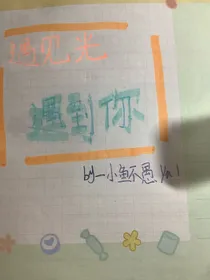 遇见光
遇到你
by一小鱼不愚